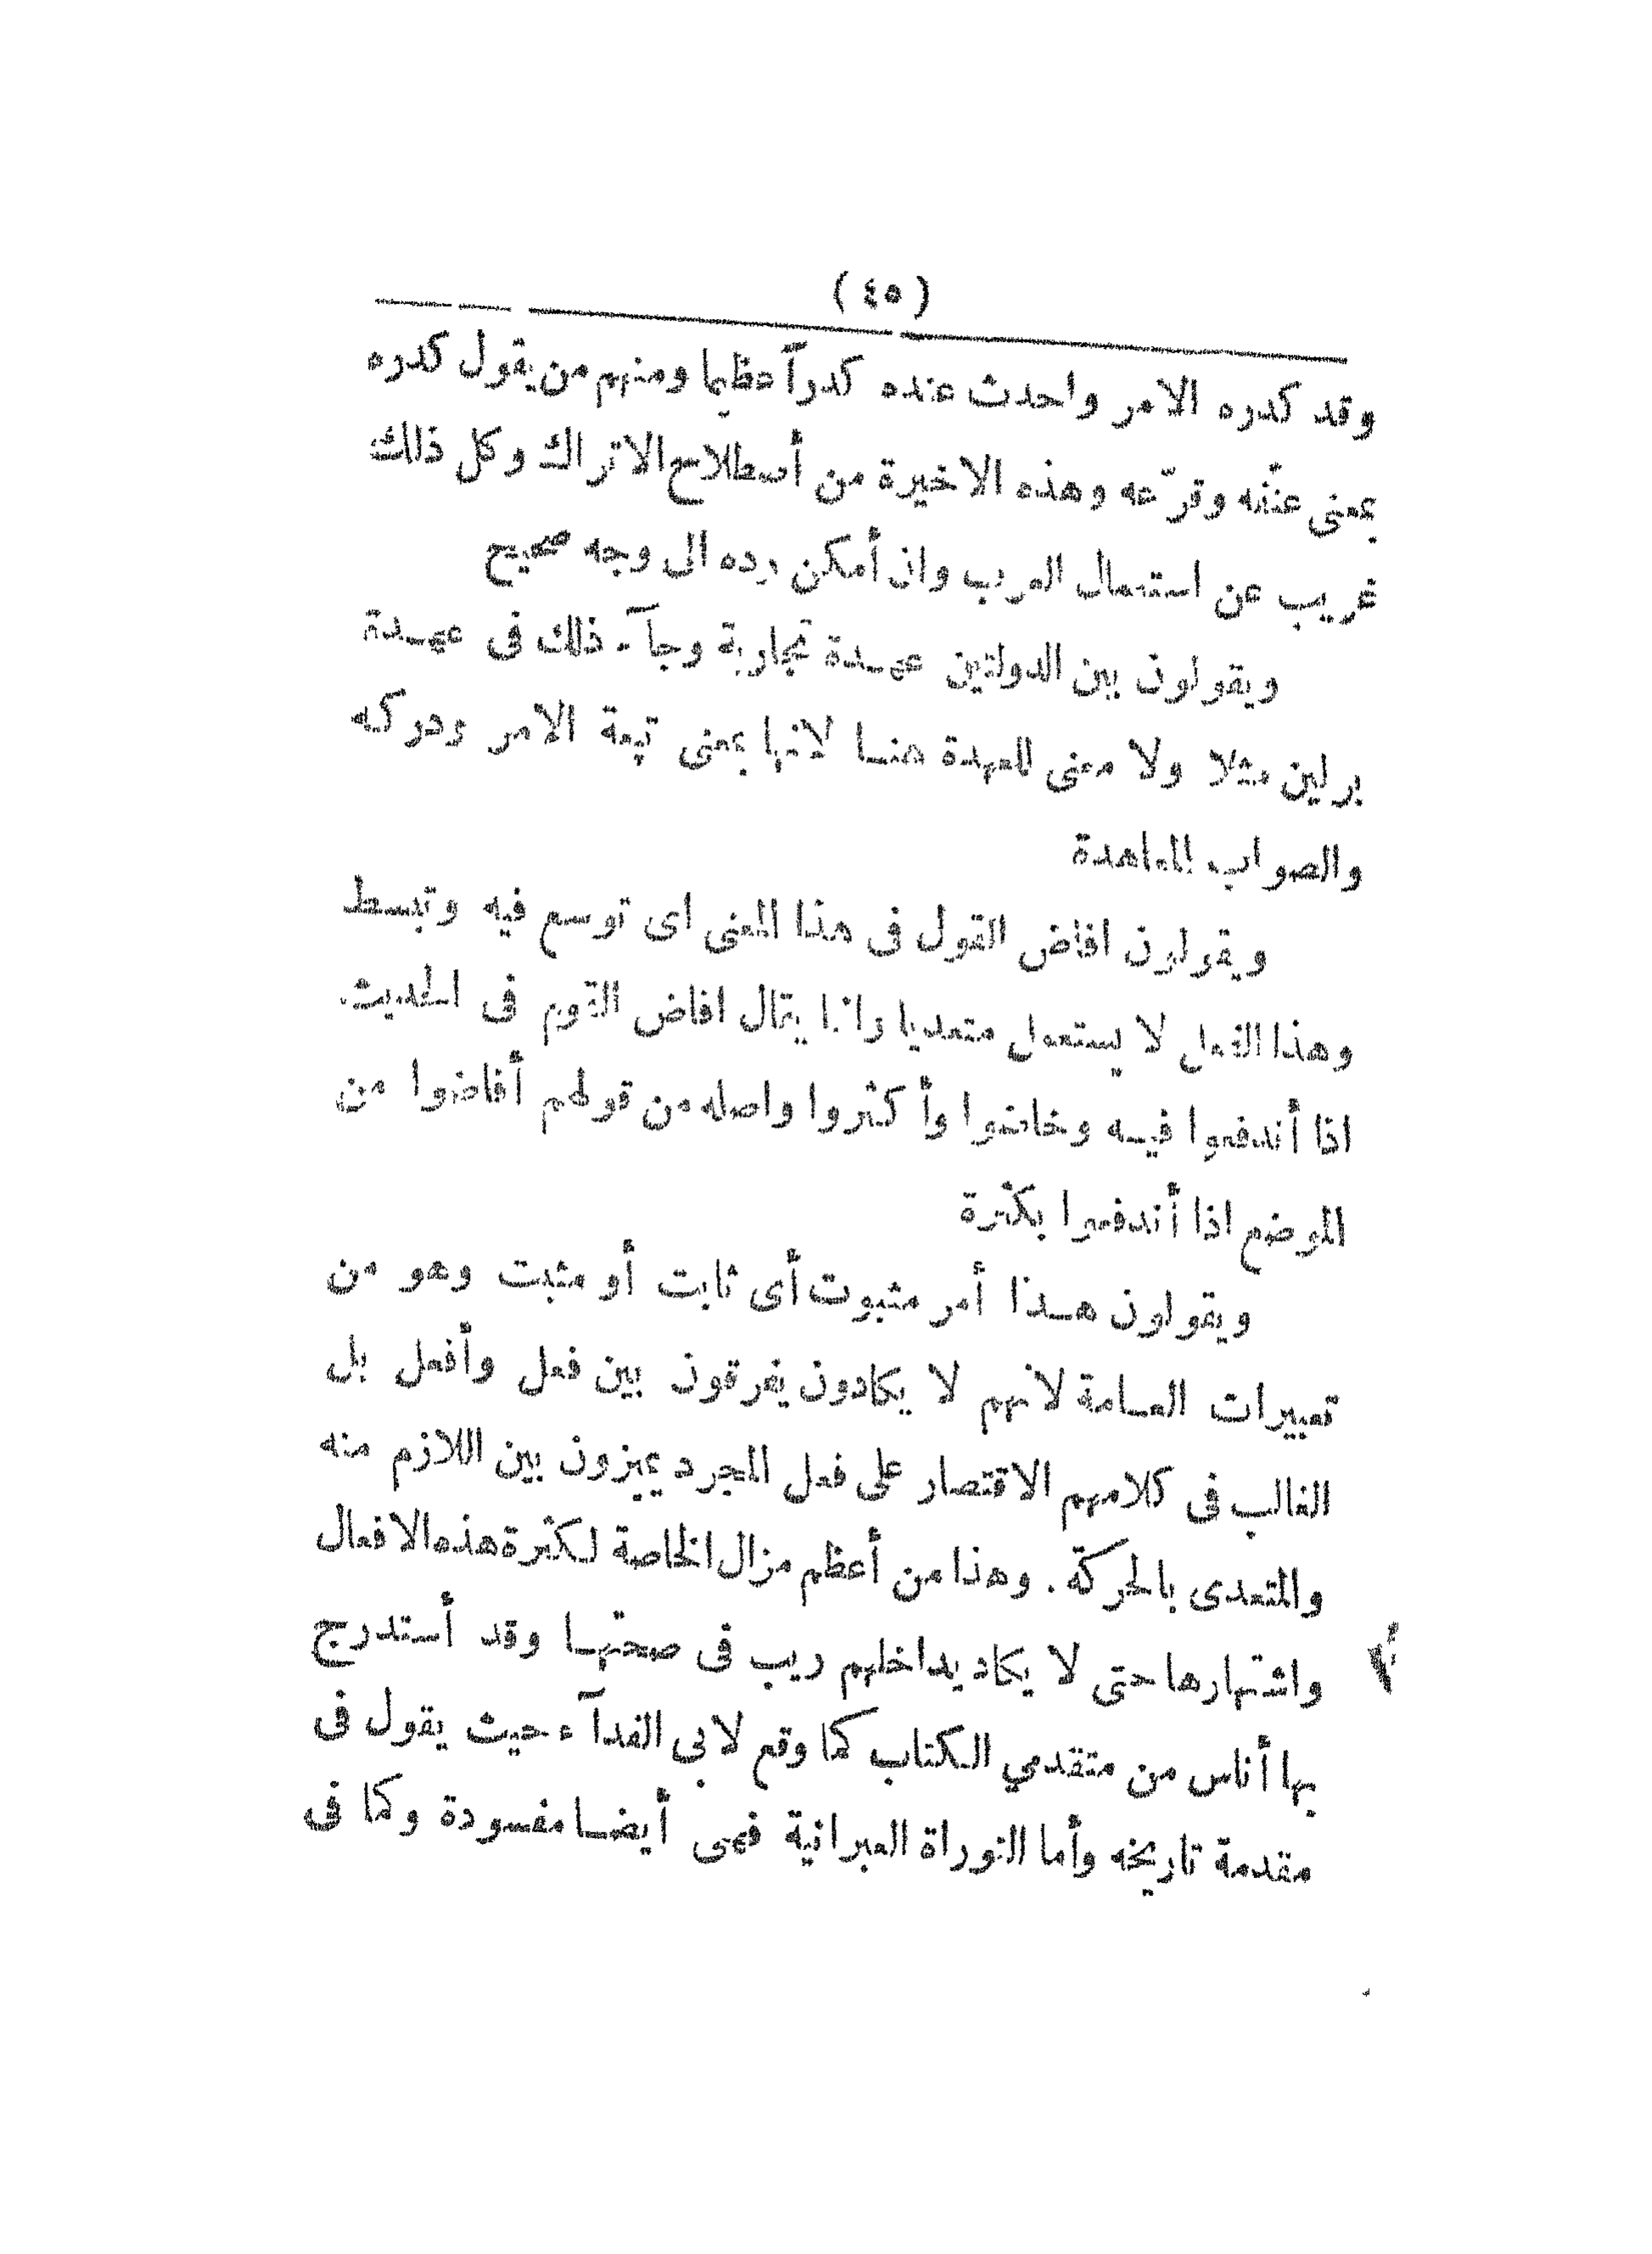 ( ٤٥ )
وقد كدره الامر واحدث عنده كدرآ عظيما ومنهم من يقول كدره
بمعنى عنّفه وقرّعه وهذه الاخيرة من أصطلاح الاتراك وكل ذلك
غريب عن استعمال العرب وان أمكن رده الى وجه صحيح
ويقولون بين الدولتين عهدة تجارية وجآء ذلك فى عهدة
برلين مثلا ولا معنى للعهدة هنا لانها بمعنى تبعة الامر ودركه
والصواب المعاهدة
ويقولون افاض القول فى هذا المعنى اى توسع فيه وتبسط
وهذا الفعل لا يستعمل متعديا وانما يقال افاض القوم فى الحديث
اذا أندفعوا فيه وخاضوا وأكثروا واصله من قولهم أفاضوا من
الموضع اذا أندفعوا بكثرة
ويقولون هذا أمر مثبوت أى ثابت أو مثبت وهو من
تعبيرات العامة لانهم لا يكادون يفرقون بين فعل وأفعل بل
الغالب فى كلامهم الاقتصار على فعل المجرد يميزون بين اللازم منه
والمتعدى بالحركة . وهذا من أعظم مزال الخاصة لكثرة هذه الافعال
واشتهارها حتى لا يكاد يداخلهم ريب فى صحتها وقد أستدرج
بها أناس من متقدمي الكتاب كما وقع لابي الفدآء حيث يقول فى
مقدمة تاريخه وأما التوراة العبرانية فهى أيضا مفسودة وكما فى